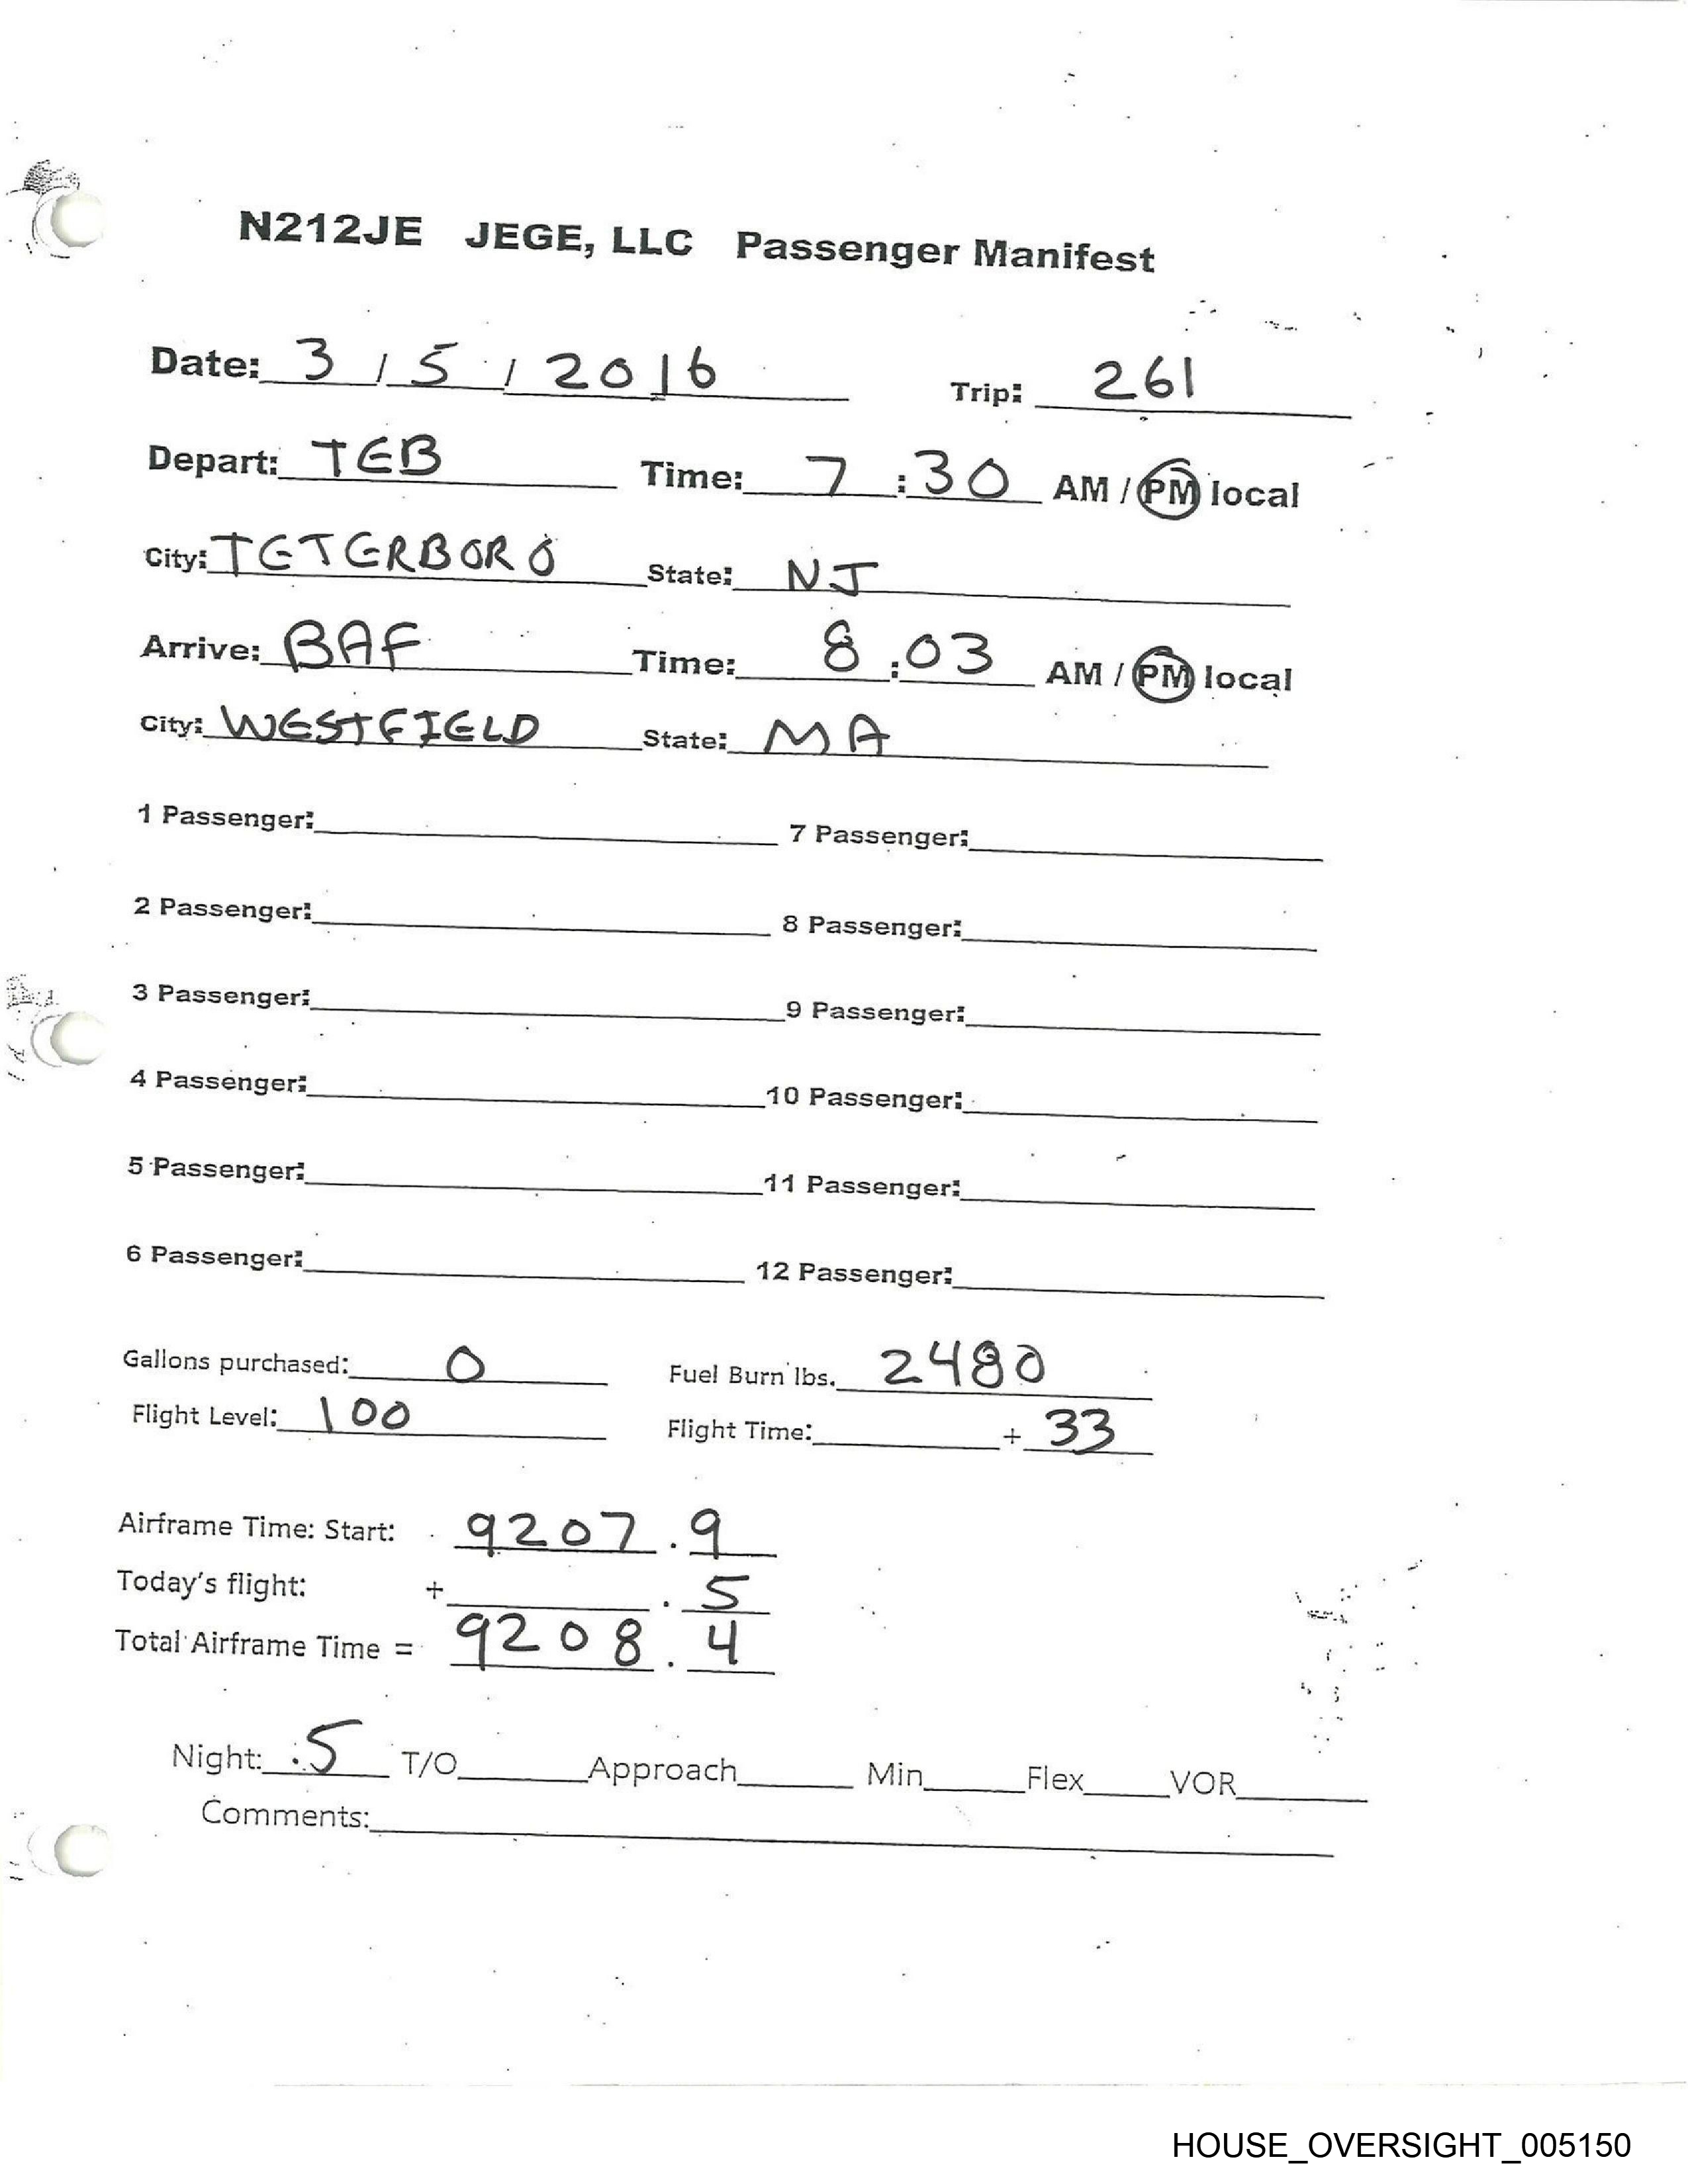 N212JE JEGE, LLC Passenger Manifest
Date: 3 / 5 / 2016 Trip: 261
Depart: TEB Time: 7 : 30 AM / PM local
City: TETERBORO State: NJ
Arrive: BAF Time: 8 : 03 AM / PM local
City: WESTFIELD State: MA
1 Passenger: 7 Passenger:
2 Passenger: 8 Passenger:
3 Passenger: 9 Passenger:
4 Passenger: 10 Passenger:
5 Passenger: 11 Passenger:
6 Passenger: 12 Passenger:
Gallons purchased: 0 Fuel Burn lbs. 2480
Flight Level: 100 Flight Time: + 33
Airframe Time: Start: 9207 . 9
Today's flight: + . 5
Total Airframe Time = 9208 . 4
Night: .5 T/O Approach Min Flex VOR
Comments:
HOUSE_OVERSIGHT_005150